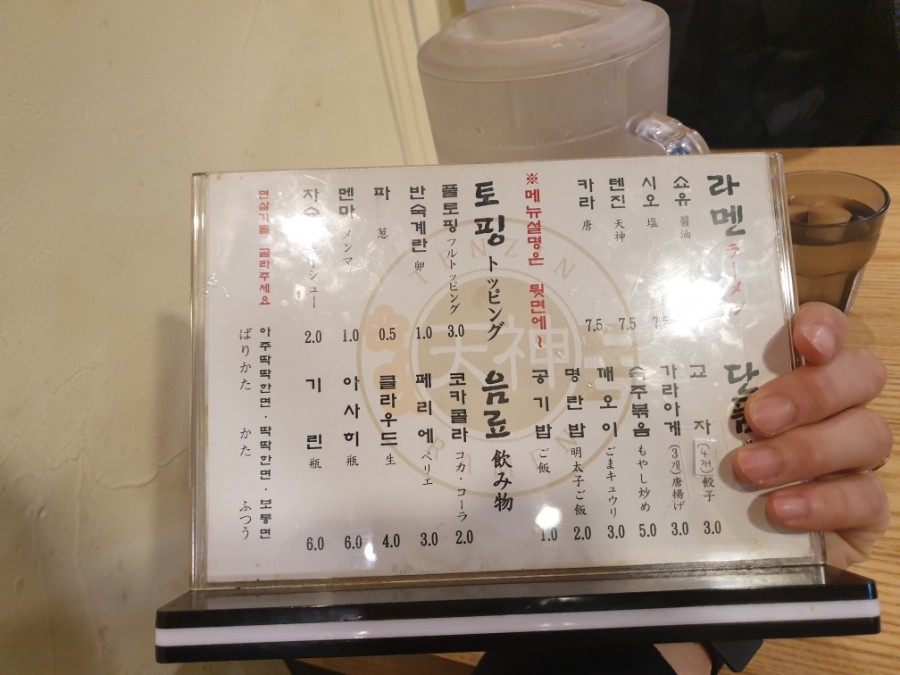 라멘 ラーメン
쇼유 醤油
시오 塩 7.5
텐진 天神 7.5
카라 唐 7.5
※메뉴설명은 뒷면에~
단품
교자 (4개) 餃子 3.0
가라아게 (3개) 唐揚げ 3.0
숙주볶음 もやし炒め 5.0
깨오이 ごまキュウリ 3.0
명란밥 明太子ご飯 2.0
공기밥 ご飯 1.0
토핑 トッピング
풀토핑 フルトッピング 3.0
반숙계란 卵 1.0
파 葱 0.5
멘마 メンマ 1.0
차슈 シュー 2.0
음료 飲み物
코카콜라 コカ・コーラ 2.0
페리에 ペリエ 3.0
클라우드 生 4.0
아사히 瓶 6.0
기린 瓶 6.0
면삶기를 골라주세요
아주딱딱한면·딱딱한면·보통면
ばりかた かた ふつう
TENZIN
天神
RAMEN